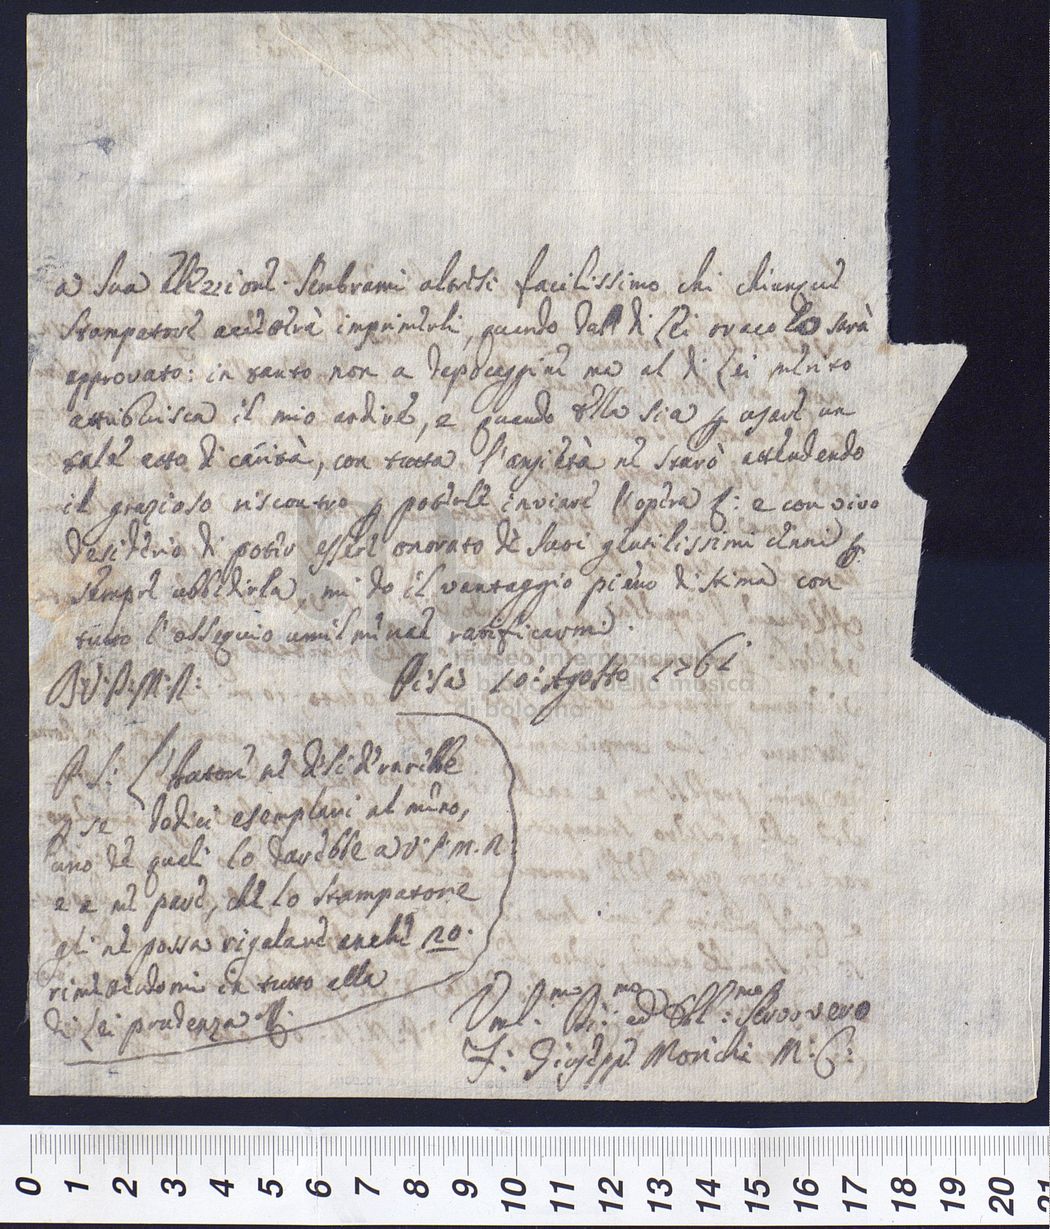 a sua Elezzione. Sembrami altresi facilissimo che chiunque
Stampatore accetterà imprimerli, quando dall di Lei oracolo sarà
approvato: in tanto non a depocaggine ma al di Lei merito
attribuisca il mio ardire, e quando ella sia p usare un
tale atto di carità, con tutta l'ansietà ne starò attendendo
il grazioso riscontro p poterle inviare l'opera: e con vivo
desiderio di poter essere onorato de suoi gentilissimi cenni p
sempre ubbidirla, mi do il vantaggio pieno di stima con
tutto l'ossequio umilmente ratificarmi.
Di V. P. M. R:
Pisa 10: Agosto 1761
P. S: L'Autore ne desiderarebbe
p se dodici esemplari al meno,
uno de quali lo darebbe a V. P. M. R.
e a me pare, che lo Stampatore
gli ne possa rigalare anche 20.
rimettendomi in tutto alla
di Lei prudenza
Uml.mo Di:mo ed Obl:mo Servo vero
F: Giuseppe Morichi M: C:
museo internazionale
e biblioteca della musica
di bologna
0 1 2 3 4 5 6 7 8 9 10 11 12 13 14 15 16 17 18 19 20 21